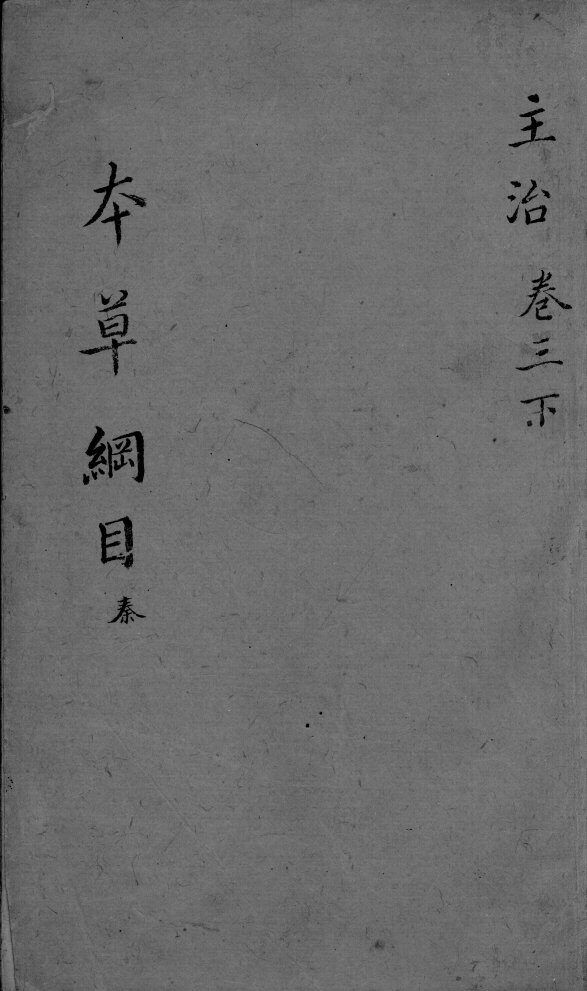 主治 卷三下
本草綱目 秦